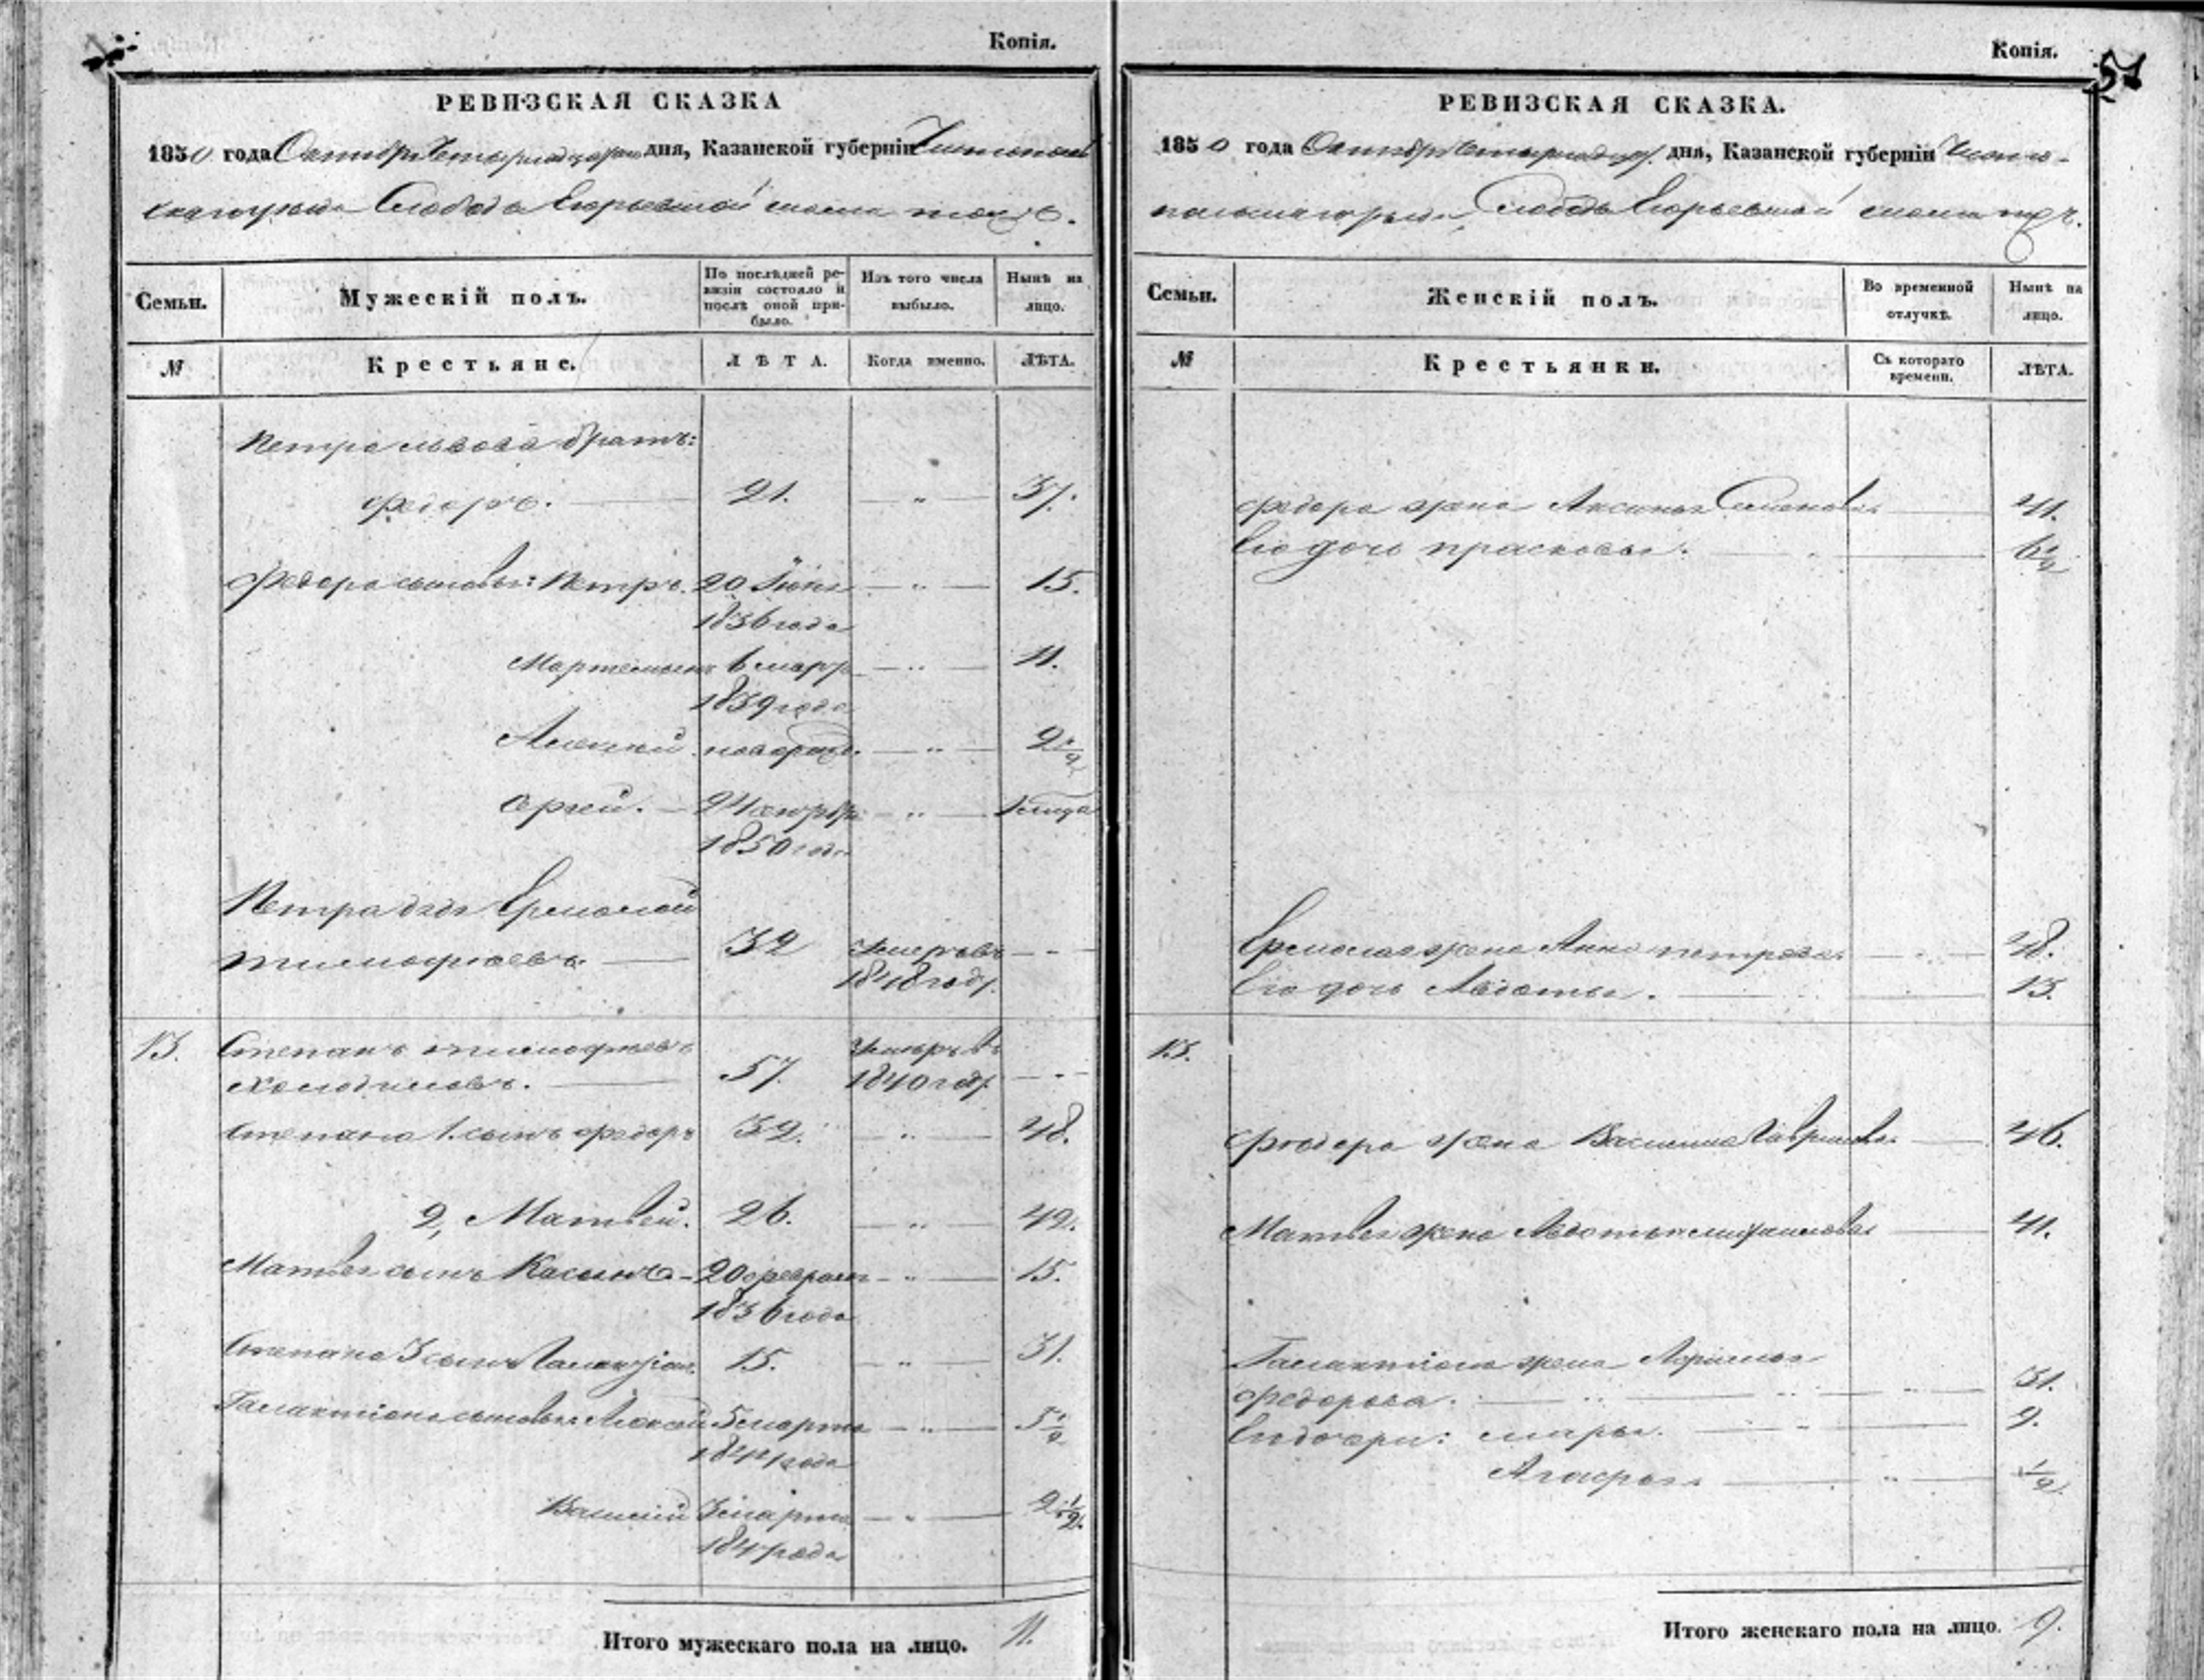 Копія.
РЕВИЗСКАЯ СКАЗКА
1850 года Октября Четырнадцатаго дня, Казанской губерніи Чистополь
скаго уезда Слобода Екорьевской
Семьи.
Мужескій полъ.
По послѣдней ре-
визіи состояло и
послѣ оной при-
было.
Изъ того числа
выбыло.
Нынѣ на
лицо.
№
Крестьяне.
ЛѢТА.
Когда именно.
ЛѢТА.
Петра Львова братъ:
Федоръ. 21. " 37.
Федора сыновья: Петръ. 20 Іюня " 15.
1836 года
Мартемьянъ 6 марта " 11.
1839 года
Алексей новорожд. " 2 1/2
Сергей. 24 сентября " 1 месяца
1850 года
Петра дядя Ермолай
Тимофеевъ. 32 Умеръ въ
1848 году.
13. Степанъ Тимофеевъ Умеръ въ
Холодиловъ. 57. 1840 году.
Степана 1. сынъ Федоръ 32. " 48.
2, Матвей. 26. " 42.
Матвея сынъ Касьянъ 20 февраля " 15.
1836 года
Степана 3 сынъ Галактіонъ. 15. " 31.
Галактіона сыновья: Алексей 5 марта " 5 1/2
184 года
Василій 3 марта " 2 1/2.
184 года
Итого мужескаго пола на лицо. 11.
Копія.
51
РЕВИЗСКАЯ СКАЗКА.
1850 года Октября Четырнадцат. дня, Казанской губерніи Чисто-
польскаго уезда, Слобода Екорьевской
Семьи.
Женскій полъ.
Во временной
отлучкѣ.
Нынѣ на
лицо.
№
Крестьянки.
Съ котораго
времени.
ЛѢТА.
Федора жена Аксинья Семенова 41.
Его дочь Прасковья. 6 1/2
Ермолая жена Анна Петрова 48.
Его дочь Авдотья. 13.
13.
Федора жена Василиса Гаврилова. 46.
Матвея жена Авдотья Михайлова 41.
Галактіона жена Афимья
Федорова. 31.
Его дочери: Марья. 9.
Агафья. 1/2
Итого женскаго пола на лицо. 9.